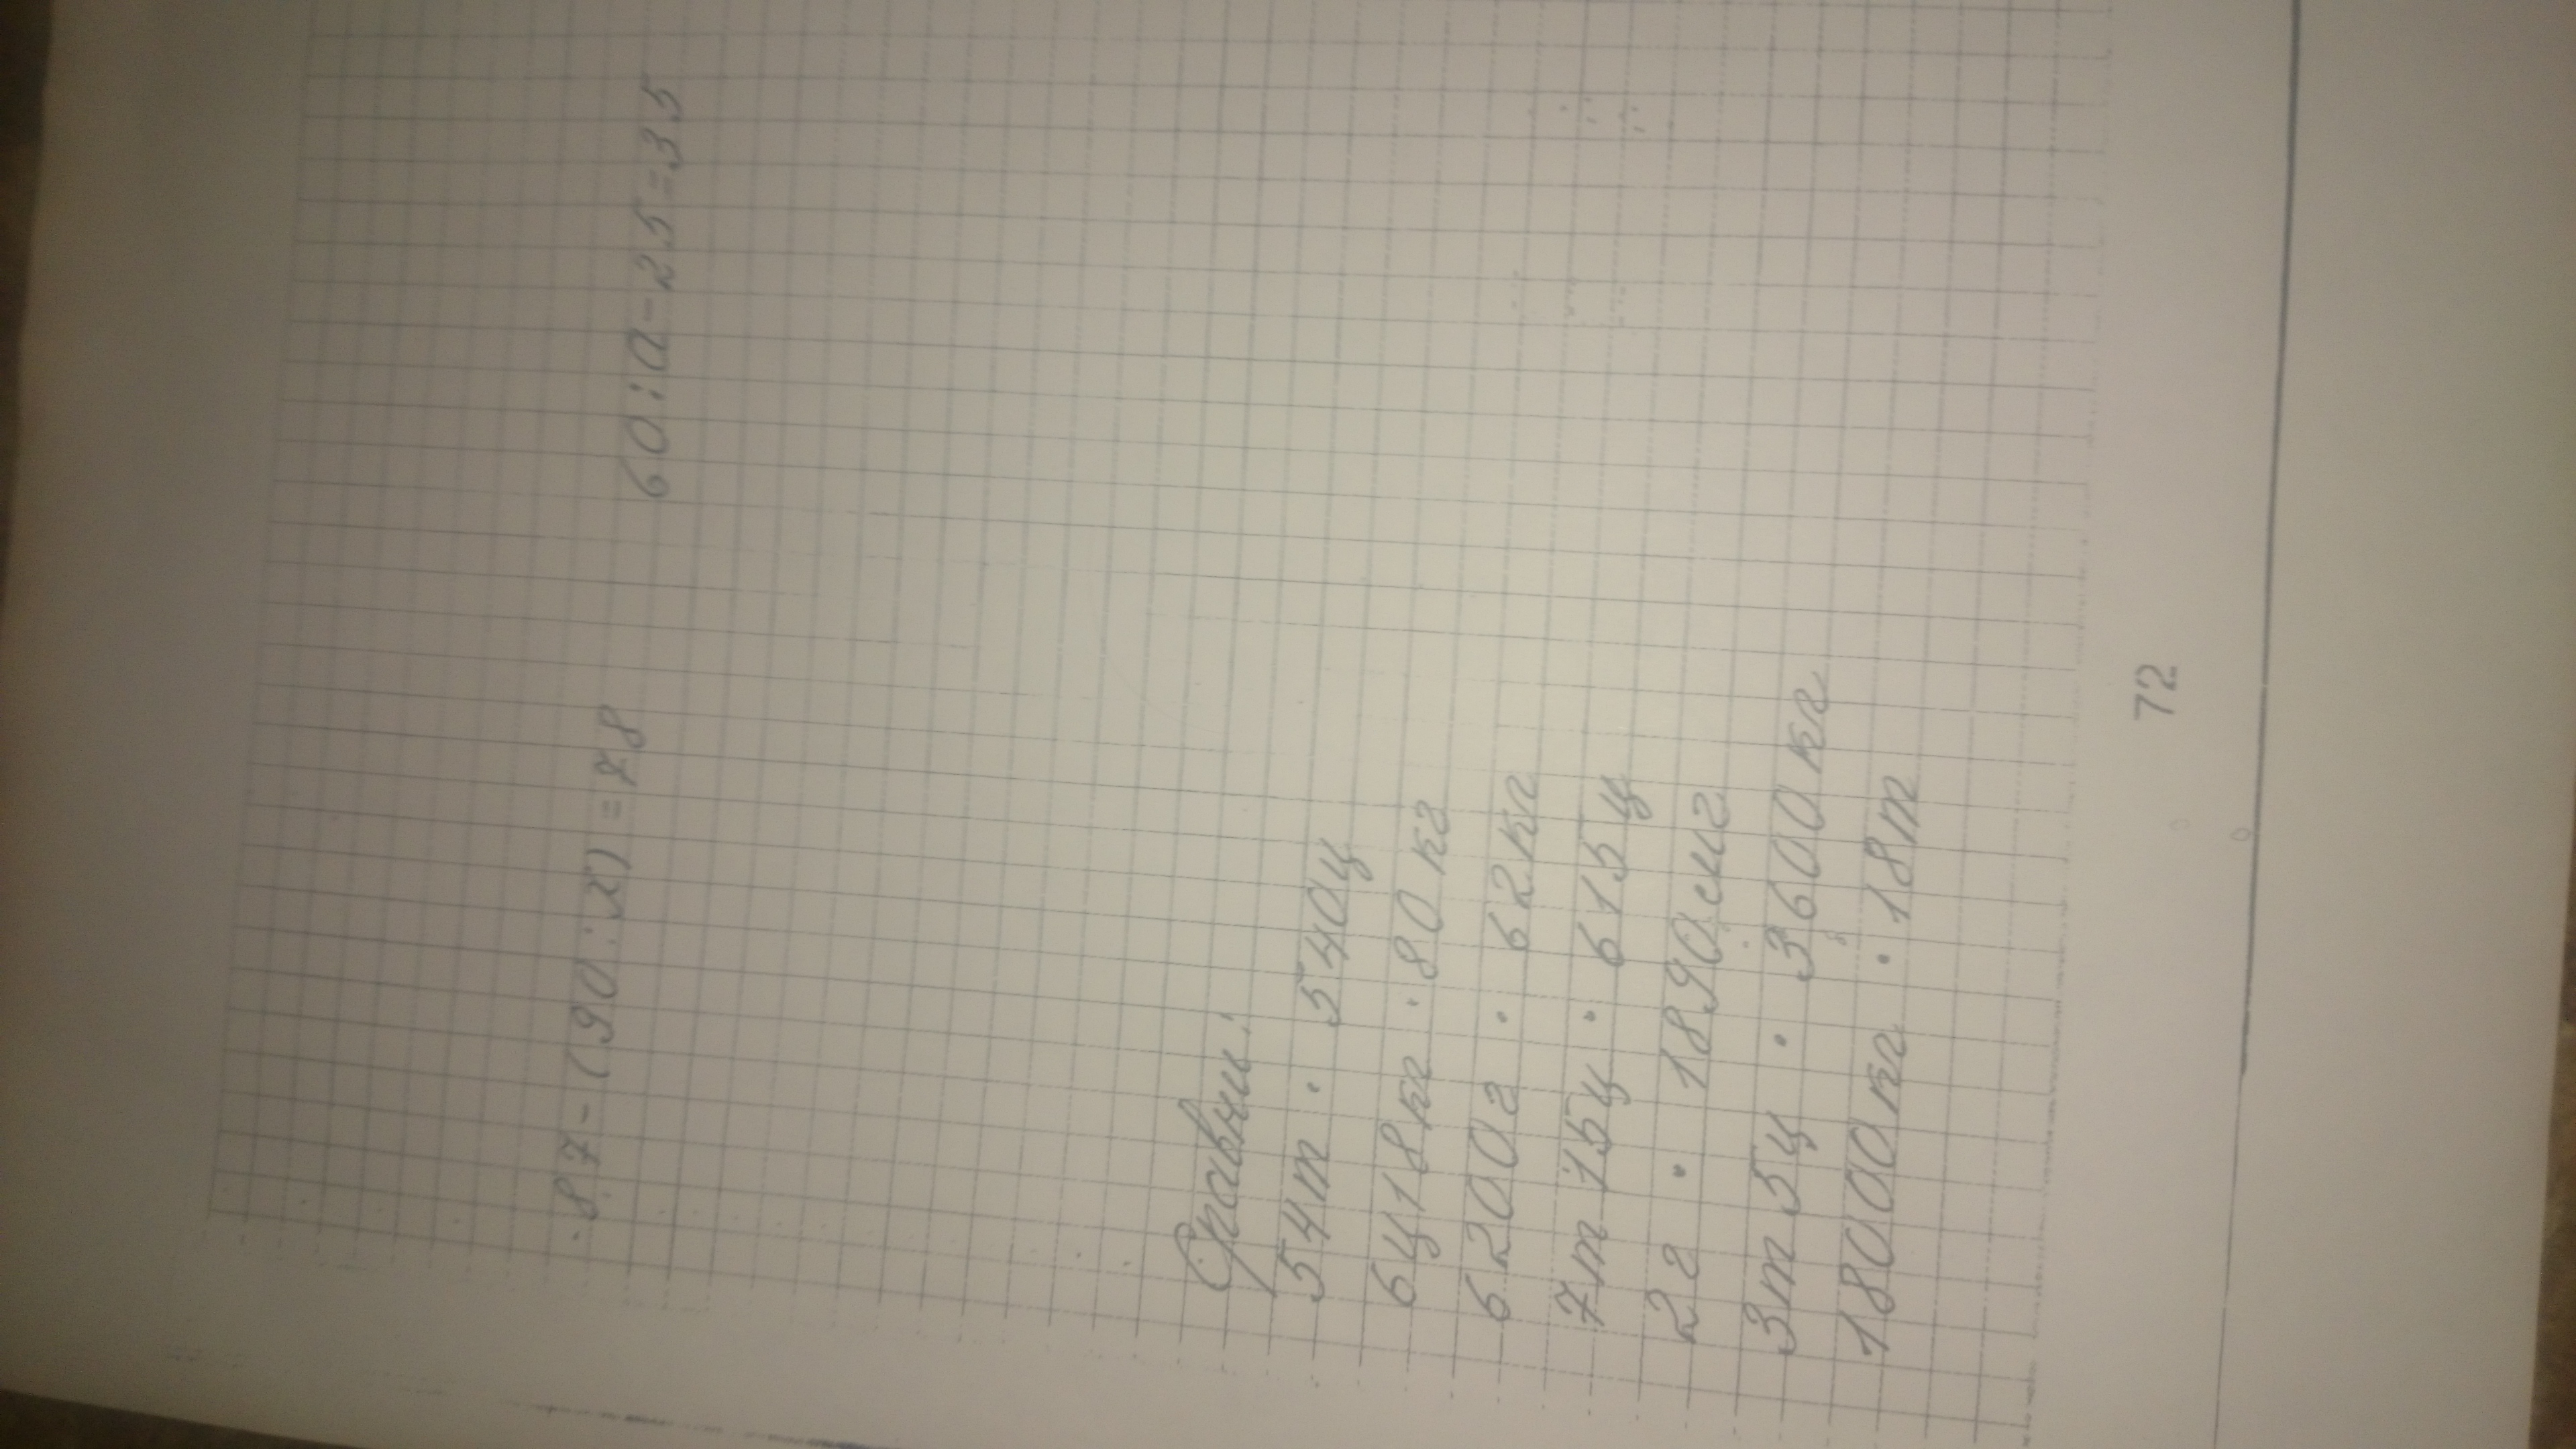 87-(90:x)=78 60:a-25=35
Сравни:
54т . 540ц
6ц18кг . 80кг
6200г . 62кг
7т15ц . 615ц
2г . 1890смг
3т5ц . 3600кг
18000кг . 18т
72